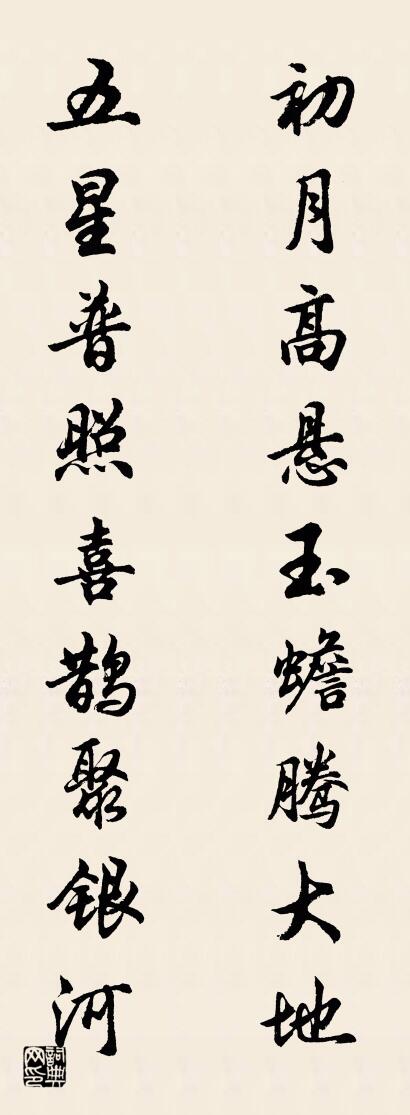 初月高悬玉蟾腾大地
五星普照喜鹊聚银河
词典网印